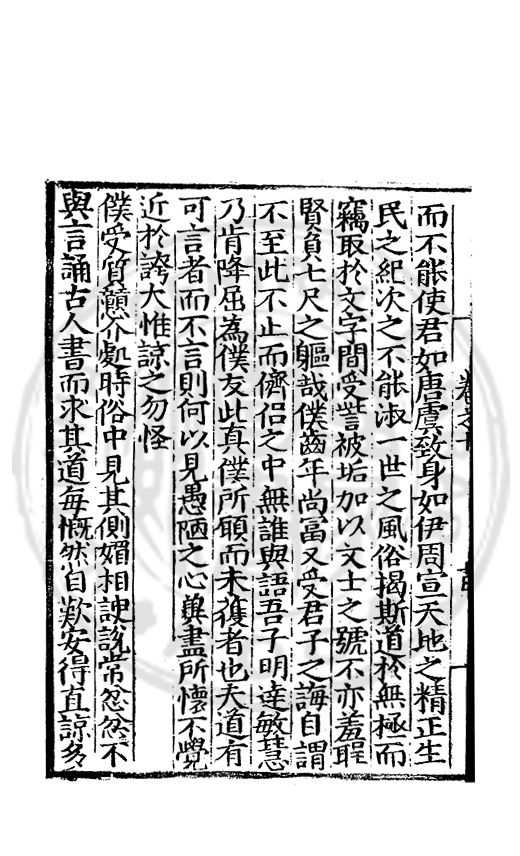 而不能使君如唐虞致身如伊周宣天地之精正生
民之紀次之不能淑一世之風俗揭斯道於無極而
竊取於文字間受訾被垢加以文士之號不亦羞聖
賢負七尺之軀哉僕齒年尚富又受君子之誨自謂
不至此不止而儕侶之中無誰與語吾子明達敏慧
乃肯降屈為僕友此真僕所願而未獲者也夫道有
可言者而不言則何以見愚陋之心輿盡所懷不覺
近於誇大惟諒之勿怪
僕受質戇介處時俗中見其側媚相諛說常忿忿不
與言誦古人書而求其道每慨然自歎安得直諒多